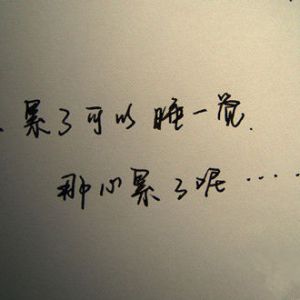 、累了可以睡一觉.
那心累了呢……